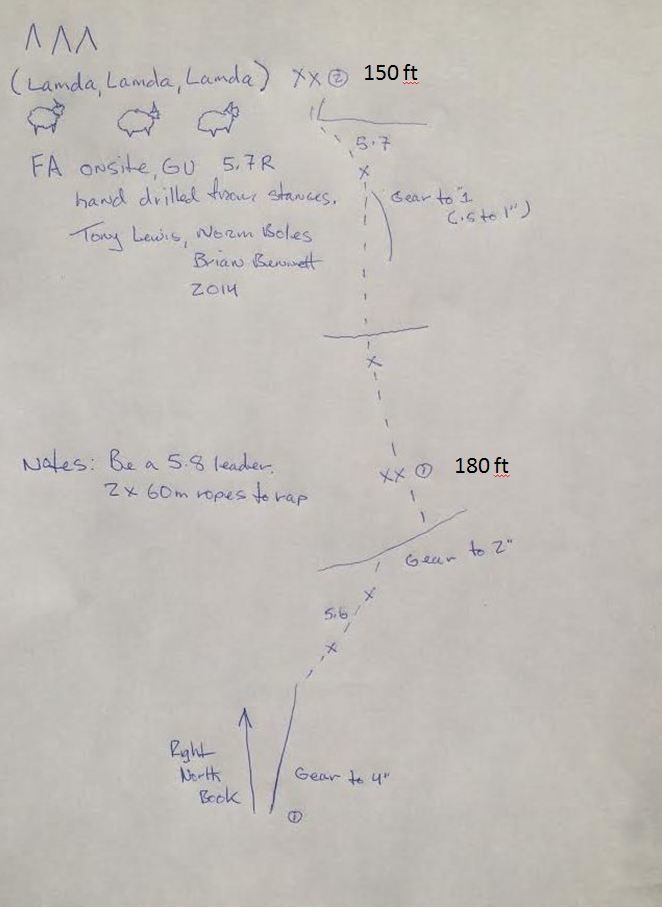 ΛΛΛ
(Lamda, Lamda, Lamda)
XX ② 150 ft
5.7
X
FA onsite, GU 5.7R
hand drilled from stances.
Tony Lewis, Norm Boles
Brian Bennett
2014
Gear to 1"
(.5 to 1")
X
Notes: Be a 5.8 leader.
2 x 60m ropes to rap
XX ① 180 ft
Gear to 2"
X
5.6
X
Right
North
Book
Gear to 4"
①